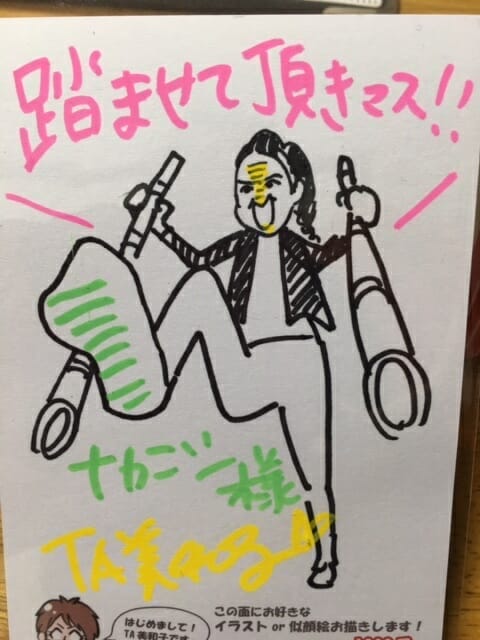 踏ませて頂きマス!!
ナカニシー様
TA美和子
はじめまして!
TA美和子です
この面にお好きな
イラスト or 似顔絵お描きします!